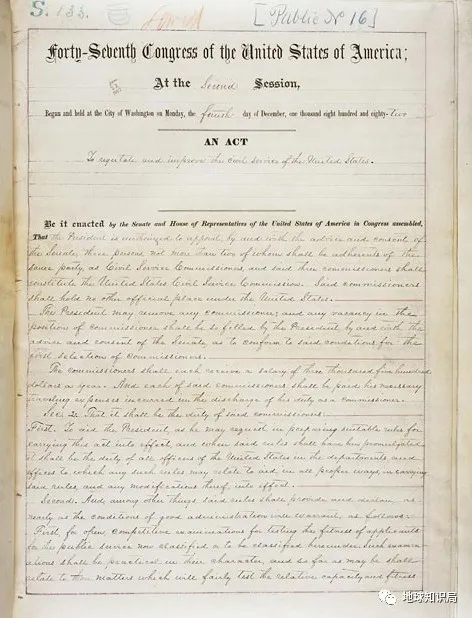 S. 133.
[Public No 16]
Forty-Seventh Congress of the United States of America;
At the Second Session,
Began and held at the City of Washington on Monday, the fourth day of December, one thousand eight hundred and eighty-two
AN ACT
To regulate and improve the civil service of the United States.
Be it enacted by the Senate and House of Representatives of the United States of America in Congress assembled,
That the President is authorized to appoint, by and with the advice and consent of
the Senate, three persons, not more than two of whom shall be adherents of the
same party, as Civil Service Commissioners, and said three commissioners shall
constitute the United States Civil Service Commission. Said commissioners
shall hold no other official place under the United States.
The President may remove any commissioner; and any vacancy in the
position of commissioner shall be so filled by the President, by and with the
advice and consent of the Senate, as to conform to said conditions for the
first selection of commissioners.
The commissioners shall each receive a salary of three thousand five hundred
dollars a year. And each of said commissioners shall be paid his necessary
traveling expenses incurred in the discharge of his duty as a commissioner.
Sec. 2. That it shall be the duty of said commissioners:
First. To aid the President, as he may request, in preparing suitable rules for
carrying this act into effect, and when said rules shall have been promulgated
it shall be the duty of all officers of the United States in the departments and
offices to which any such rules may relate to aid, in all proper ways, in carrying
said rules, and any modifications thereof, into effect.
Second. And, among other things, said rules shall provide and declare, as
nearly as the conditions of good administration will warrant, as follows:
First, for open, competitive examinations for testing the fitness of applicants
for the public service now classified or to be classified hereunder. Such examin-
ations shall be practical in their character, and so far as may be shall
relate to those matters which will fairly test the relative capacity and fitness
地球知识局